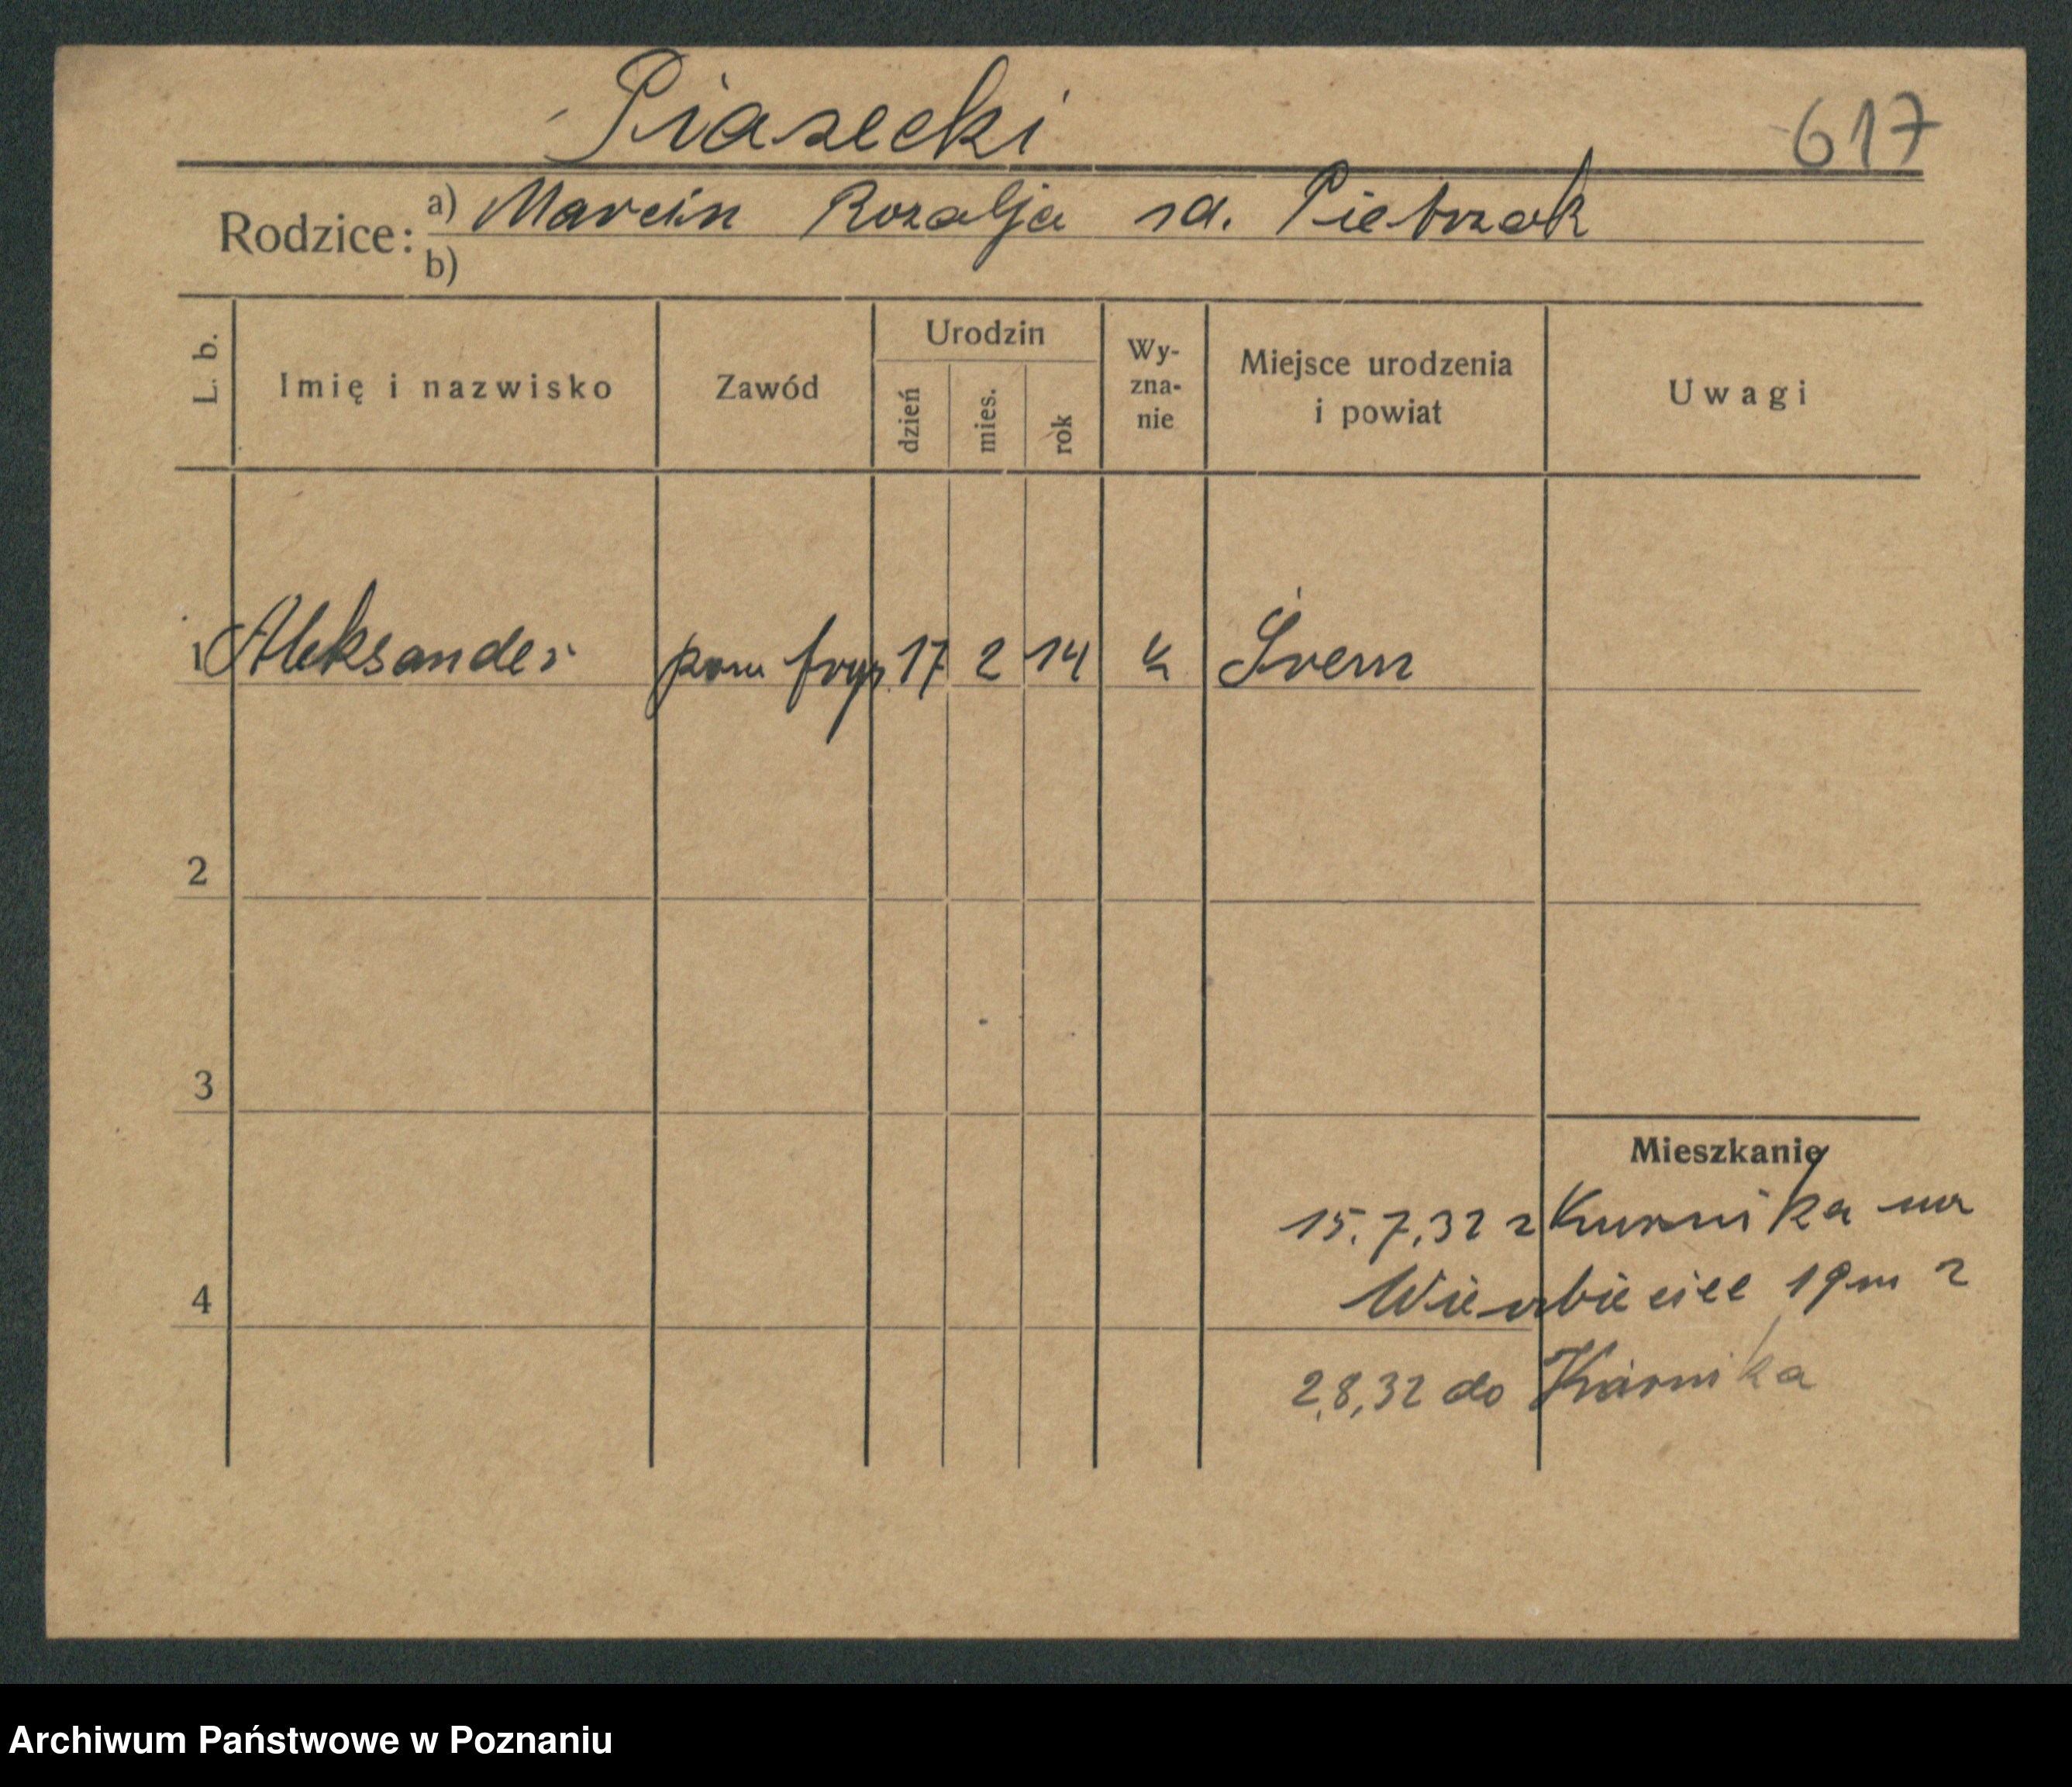 Piasecki
617
Rodzice: a) Marcin Rozalja zd. Pietrzak
b)
L. b. Imię i nazwisko Zawód Urodzin dzień mies. rok Wy-zna-nie Miejsce urodzenia i powiat Uwagi
1 Aleksander pom fryz. 17 2 14 k Śrem
2
3
Mieszkanie
15.7.32 z Kurnika na
4 Wierbięcice 19 m 2
2.8.32 do Kórnika
Archiwum Państwowe w Poznaniu